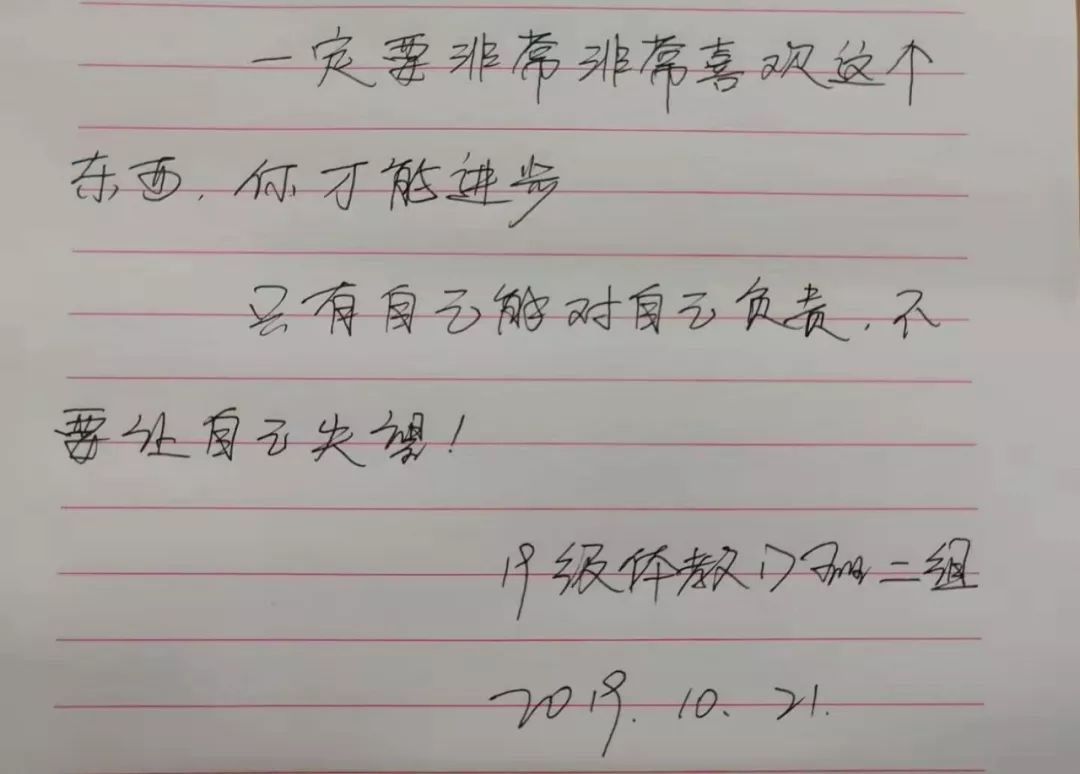 一定要非常非常喜欢这个
东西，你才能进步
只有自己能对自己负责，不
要让自己失望！
19级体教 二组
2019.10.21.